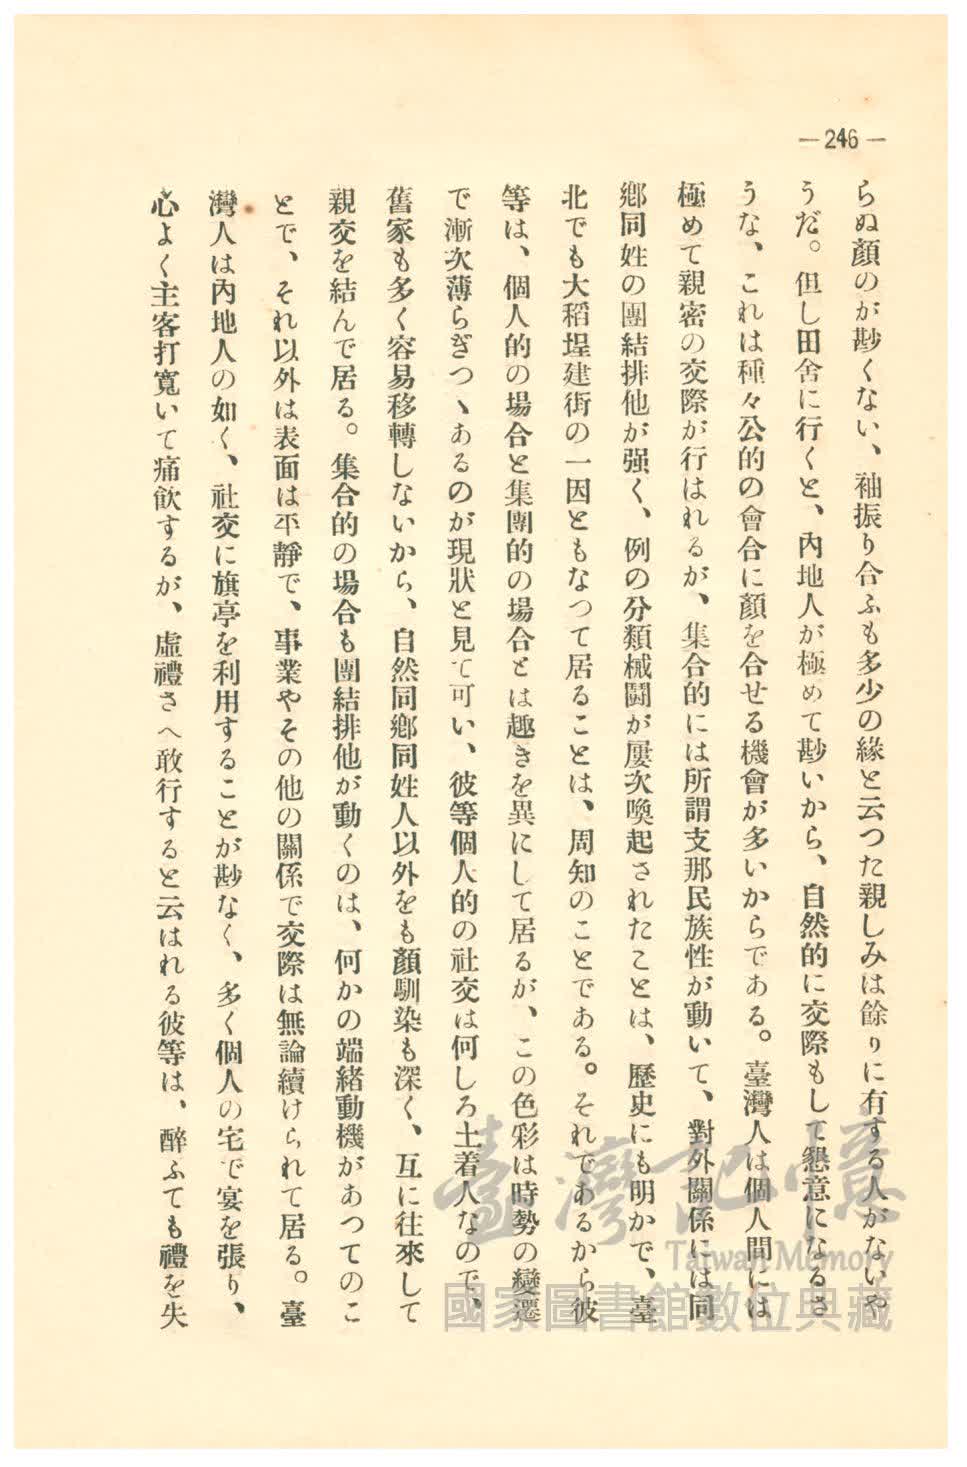 — 246 —
らぬ顏のが尠くない、袖振り合ふも多少の緣と云つた親しみは餘りに有する人がないや
うだ。但し田舍に行くと、內地人が極めて尠いから、自然的に交際もして懇意になるさ
うな、これは種々公的の會合に顏を合せる機會が多いからである。臺灣人は個人間には
極めて親密の交際が行はれるが、集合的には所謂支那民族性が動いて、對外關係には同
鄕同姓の團結排他が强く、例の分類械鬪が屢次喚起されたことは、歷史にも明かで、臺
北でも大稻埕建街の一因ともなつて居ることは、周知のことである。それであるから彼
等は、個人的の場合と集團的の場合とは趣きを異にして居るが、この色彩は時勢の變遷
で漸次薄らぎつゝあるのが現狀と見て可い、彼等個人的の社交は何しろ土着人なので、
舊家も多く容易移轉しないから、自然同鄕同姓人以外をも顏馴染も深く、互に往來して
親交を結んで居る。集合的の場合も團結排他が動くのは、何かの端緖動機があつてのこ
とで、それ以外は表面は平靜で、事業やその他の關係で交際は無論續けられて居る。臺
灣人は內地人の如く、社交に旗亭を利用することが尠なく、多く個人の宅で宴を張り、
心よく主客打寬いて痛飮するが、虛禮さへ敢行すると云はれる彼等は、醉ふても禮を失
臺灣記憶
Taiwan Memory
國家圖書館數位典藏